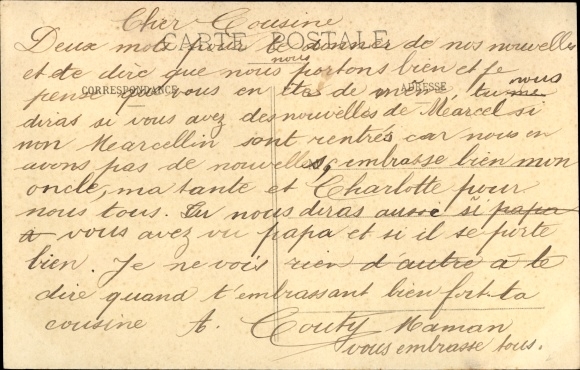 Cher Cousine
CARTE POSTALE
Deux mots pour te donner de nos nouvelles
et de dire que nous nous portons bien et je
CORRESPONDANCE
ADRESSE
pense que vous en êtes de même tu me nous
diras si vous avez des nouvelles de Marcel si
non Marcellin sont rentrés car nous en
avons pas de nouvelles, embrasse bien mon
oncle, ma tante et Charlotte pour
nous tous. Tu nous diras aussi si papa
a vous avez vu papa et si il se porte
bien. Je ne vois rien d'autre à te
dire quand t'embrassant bien fort ta
cousine A. Couty Maman
vous embrasse tous.